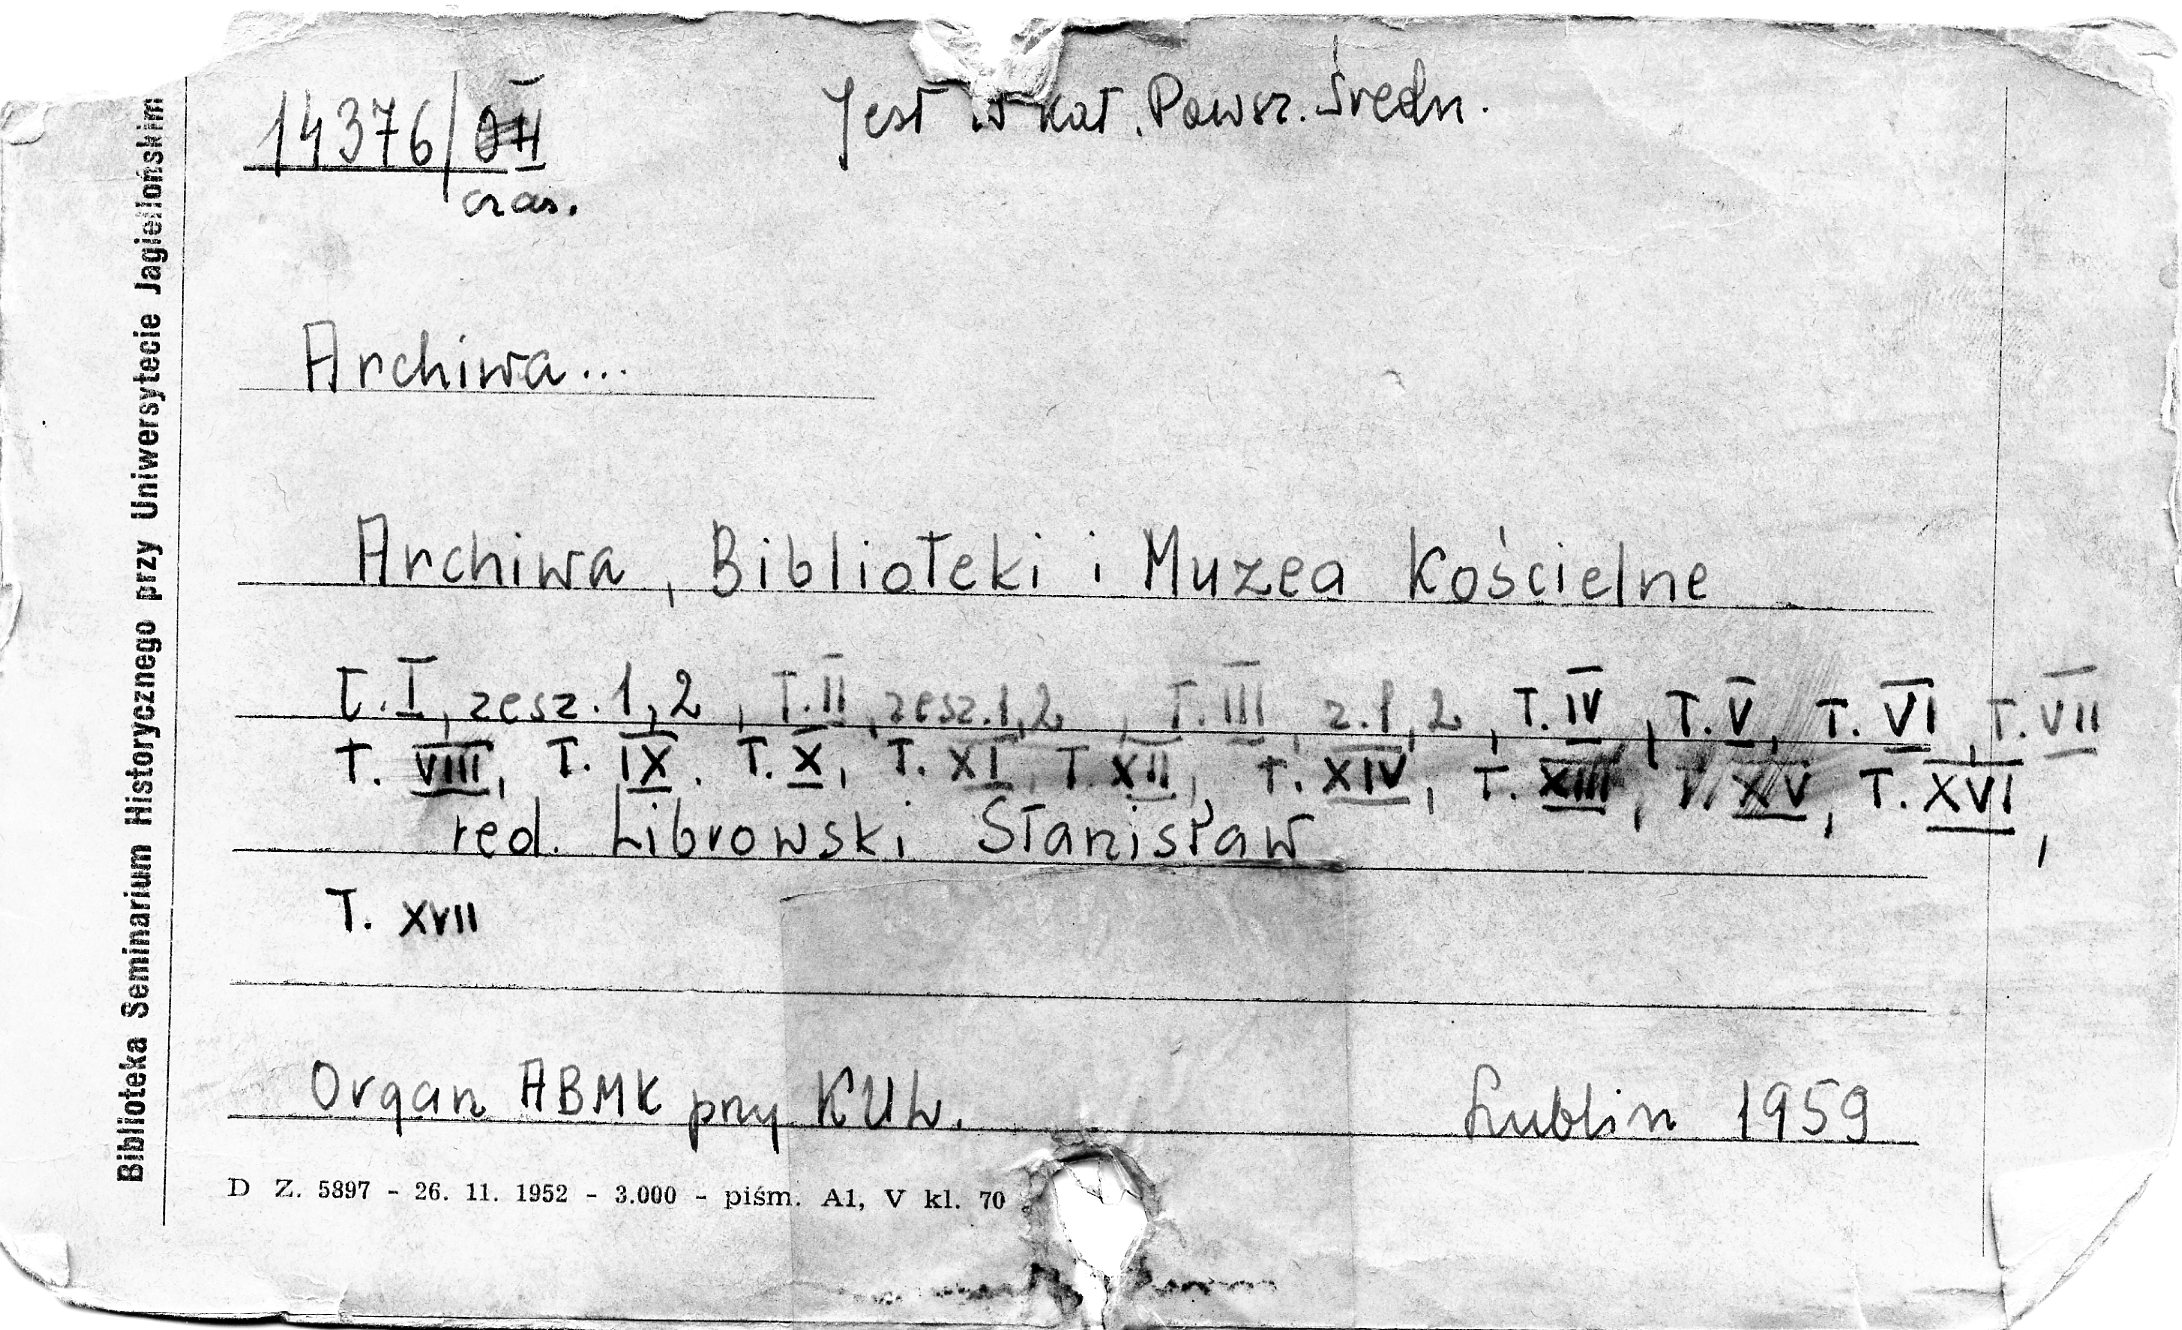 14376/
Jest w kat. Powsz. Średn.
czas.
Archiwa...
Archiwa, Biblioteki i Muzea Kościelne
t. I, zesz. 1, 2, T. II, zesz. 1, 2, T. III, z. 1, 2, T. IV, T. V, T. VI, T. VII
T. VIII, T. IX. T. X, T. XI, T. XII, T. XIV, T. XIII, T. XV, T. XVI,
red. Librowski Stanisław
T. XVII
Organ ABMK przy KUL.
Lublin 1959
D Z. 5897 - 26. 11. 1952 - 3.000 - piśm. A1, V kl. 70
Biblioteka Seminarium Historycznego przy Uniwersytecie Jagiellońskim